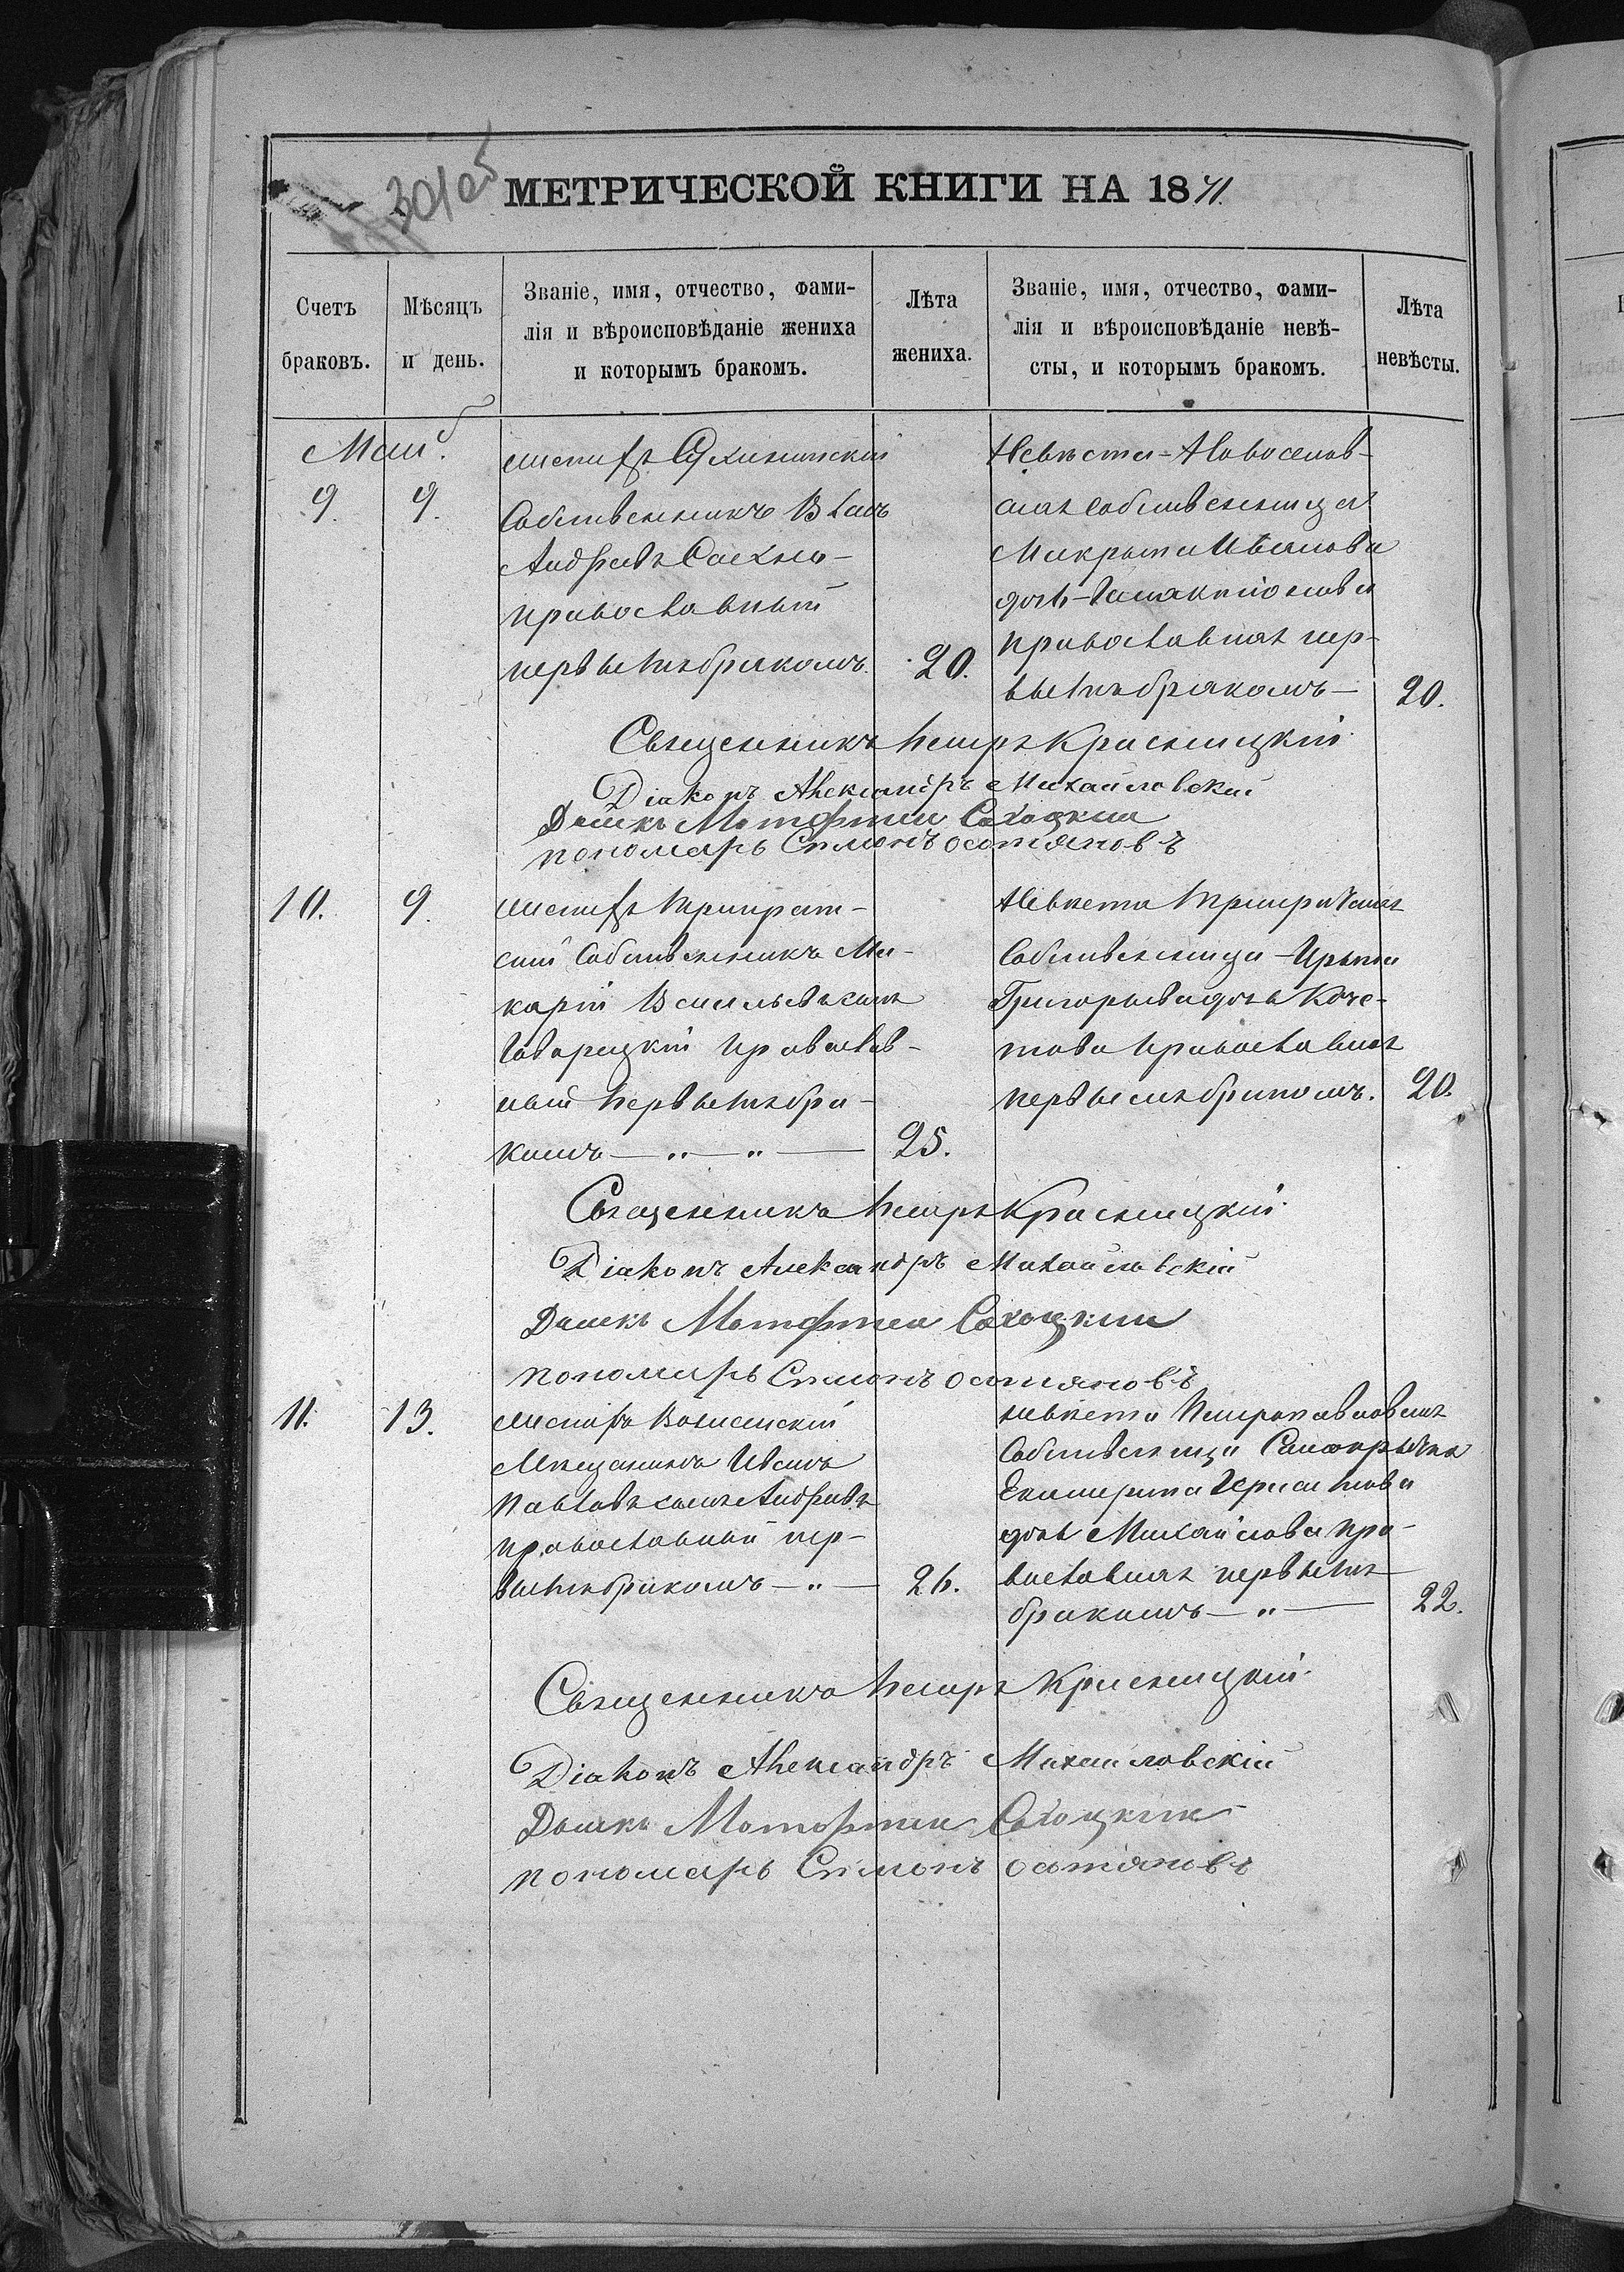 301об
МЕТРИЧЕСКОЙ КНИГИ НА 1871.
Счетъ браковъ.
Мѣсяцъ и день.
Званіе, имя, отчество, фами-
лія и вѣроисповѣданіе жениха
и которымъ бракомъ.
Лѣта
жениха.
Званіе, имя, отчество, фами-
лія и вѣроисповѣданіе невѣ-
сты, и которымъ бракомъ.
Лѣта
невѣсты.
Май.
9. 9.
женихъ
Собственникъ Власъ
Андреевъ
православный
первымъ бракомъ. 20.
Невѣста-Новоселов-
ская собственница
Макрына Иванова
дочь-Галактіонова
православная пер-
вымъ бракомъ— 20.
Священникъ Петръ Красницкій
Діаконъ Александръ Михайловскій
Дьячкъ Матфтеи Сахоцкии
пономарь Симонъ остяновъ
10. 9.
женихъ Тришрат-
скій собственникъ Ма-
карій Васильевъ сынъ
Говорецкій православ-
ный первымъ бра-
комъ—"—"— 25.
Невѣста Тришратская
собственница-Ирина
Григорьева дочь Коче-
това православная
первымъ бракомъ. 20.
Священникъ Петръ Красницкій
Діаконъ Александръ Михайловскій
Дьячкъ Матфтеи Сахоцкии
пономарь Симонъ остяновъ
11. 13.
женихъ Вознесенскій
Мѣщанинъ Иванъ
Павловъ сынъ Андреевъ
православный пер-
вымъ бракомъ—"— 26.
невѣста Петропавловская
собственница
Екатерина Герасимова
дочь Михайлова пра-
вославная первымъ
бракомъ—"— 22.
Священникъ Петръ Красницкій
Діаконъ Александръ Михайловскій
Дьячкъ Матфтеи Сахоцкии
пономарь Симонъ остяновъ